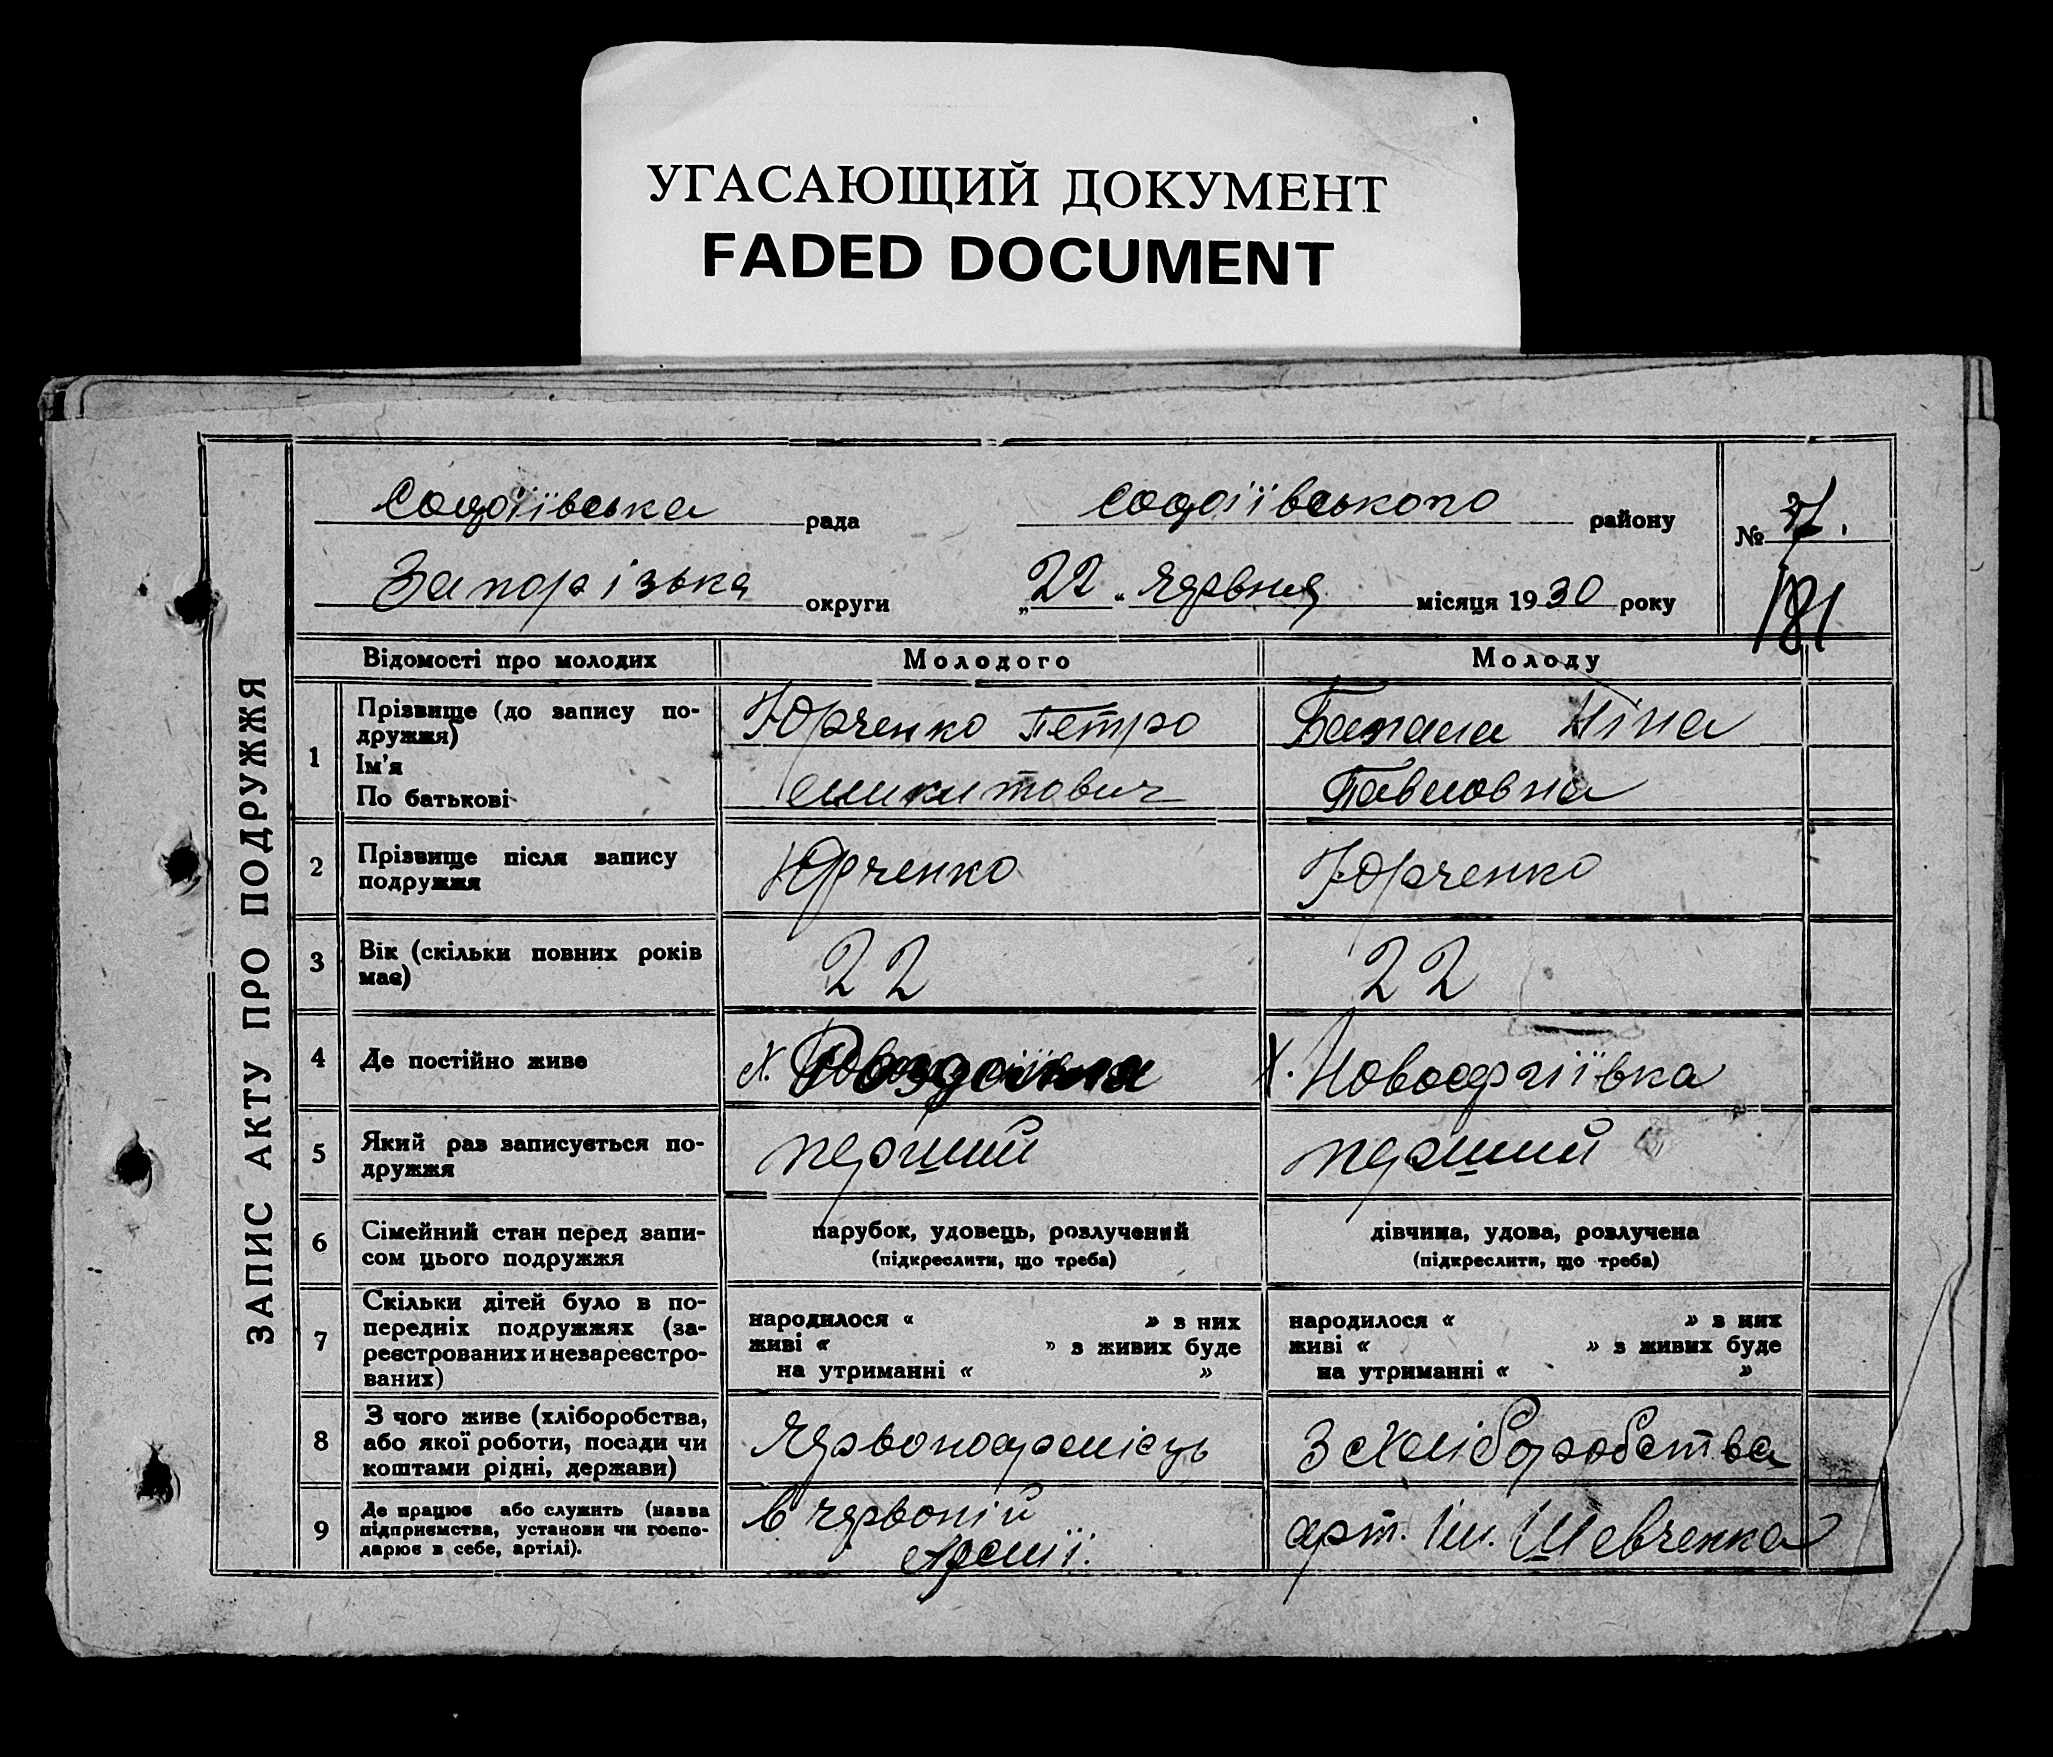 УГАСАЮЩИЙ ДОКУМЕНТ
FADED DOCUMENT
ЗАПИС АКТУ ПРО ПОДРУЖЖЯ
Софіївська рада Софіївського району
№
Запорізька округи „22" Червня місяця 1930 року
181
Відомості про молодих Молодого Молоду
1 Прізвище (до запису по-
дружжя)
Ім'я
По батькові
Юрченко Петро
Микитович
Ніна
Павловна
2 Прізвище після запису
подружжя
Юрченко Юрченко
3 Вік (скільки повних років
має)
22 22
4 Де постійно живе х. Роздолля х.
5 Який раз записується по-
дружжя
перший перший
6 Сімейний стан перед запи-
сом цього подружжя
парубок, удовець, розлучений
(підкреслити, що треба)
дівчина, удова, розлучена
(підкреслити, що треба)
7 Скільки дітей було в по-
передніх подружжях (за-
реєстрованих и незареєстро-
ваних)
народилося « » з них
живі « » з живих буде
на утриманні « »
народилося « » з них
живі « » з живих буде
на утриманні « »
8 З чого живе (хліборобства,
або якої роботи, посади чи
коштами рідні, держави)
Червоноармієць З хліборобства
9 Де працює або служить (назва
підприємства, установи чи госпо-
дарює в себе, артілі).
в червоній
Армії.
арт. Ім. Шевченка